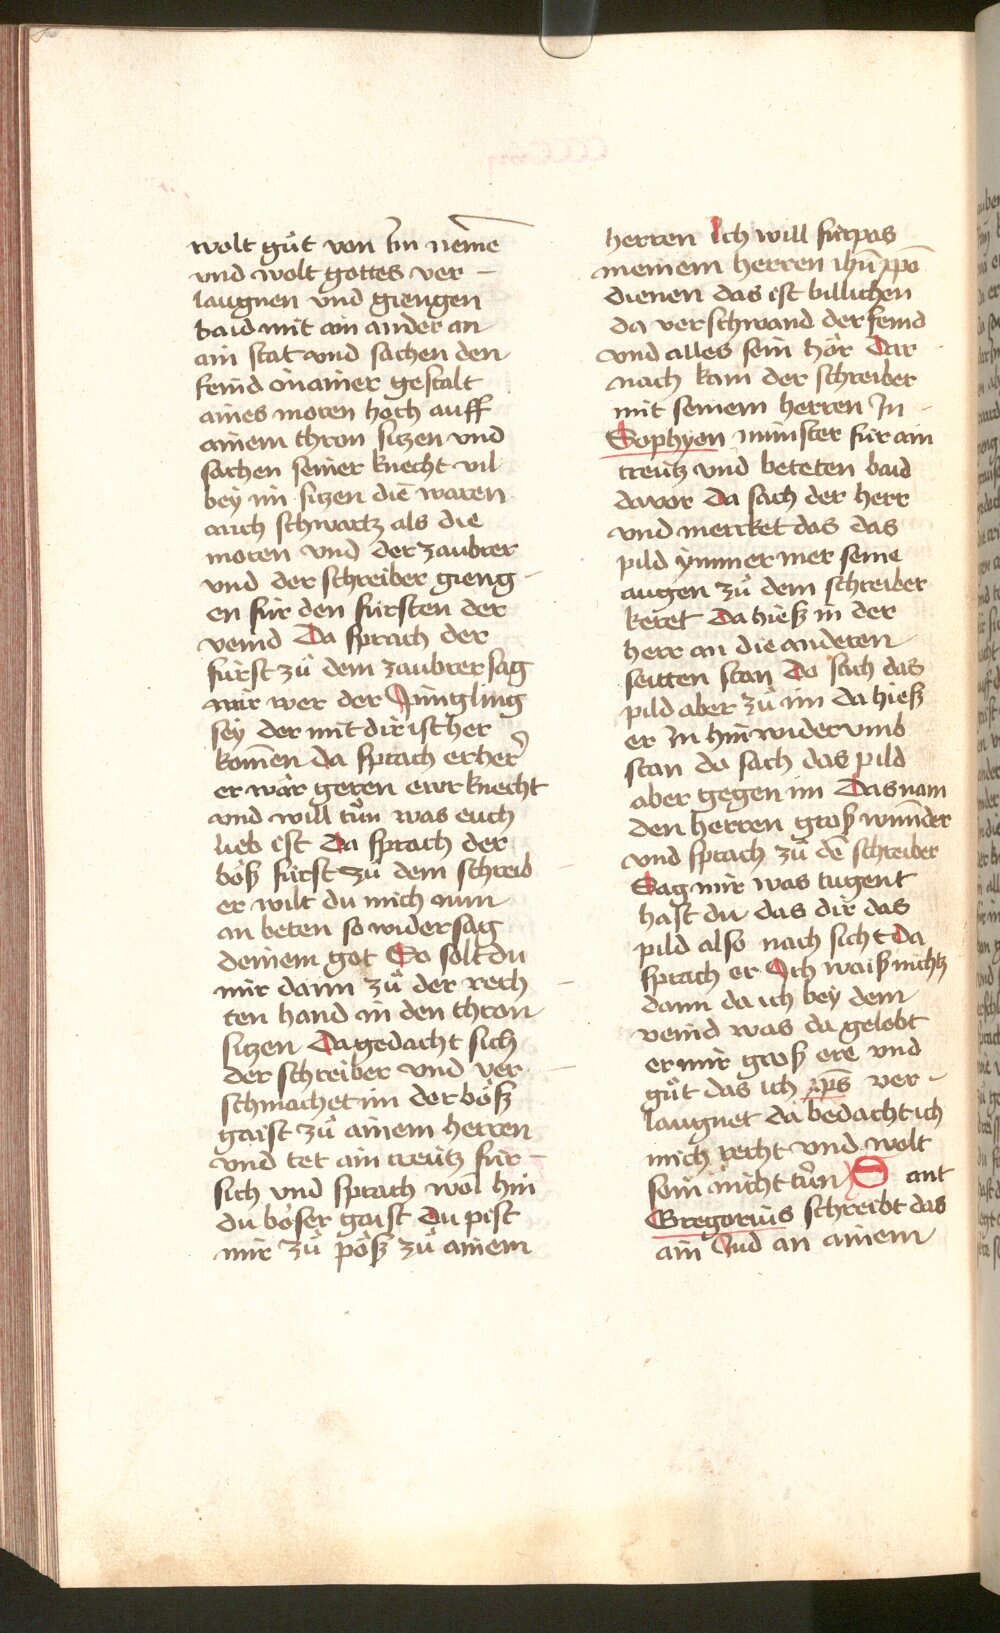 wolt gůt von im neme
vnd wolt gottes ver –
laugnen vnd giengen
baid mit ain ander an
ain stat vnd sachen den
feind in ainer gestalt
aines moren hoch auff
ainem thron siczen vnd
sachen seiner knecht vil
bey im siczen die waren
auch schwartz als die
moren vnd der zaubrer
vnd der schreiber gieng –
en für den fürsten der
veind Da sprach der
fürst zů dem zaubrer sag
mir wer der Jüngling
sey der mit dir ist her
kom̄en da sprach er her
er wär geren ewr knecht
vnd will tůn was euch
lieb ist Da sprach der
böß fürst zů dem schreib –
er wilt du mich nun
an beten so widersag
deinem got So solt du
mir dann zů der rech –
ten hand in den thron
siczen Da gedacht sich
der schreiber vnd ver –
schmachet im der böß
gaist zů ainem herren
vnd tet ain creütz für –
sich vnd sprach wol hin
du böser gaist Du pist
mir zů pöß zů ainem
herren Ich will fürpas
meinem herren ihū xp̄o
dienen das ist billichen
da verschwand der feind
vnd alles sein hör Dar –
nach kam der schreiber
mit seinem herren In –
Sophyen münster für ain
creütz vnd beteten baid
dauor Da sach der herr
vnd mercket das das
pild ymmer mer seine
augen zů dem schreiber
keret Da hieß in der
herr an die anderen
seitten stan Da sach das
pild aber zů im da hieß
er In hin wider vmb
stan do sach das pild
aber gegen im Das nam
den herren groß wunder
vnd sprach zů dē schreiber
Sag mir was tugent
hast du das dir das
pild also nach sicht Da
sprach er Ich waiß nichtz
dann da ich bey dem
veind was da gelobt
er mir groß ere vnd
gůt das ich xp̄s ver –
laugnet da bedacht ich
mich recht vnd wolt
sein nicht tůn Sant
Gregorius schreibt das
ain Jud an ainem